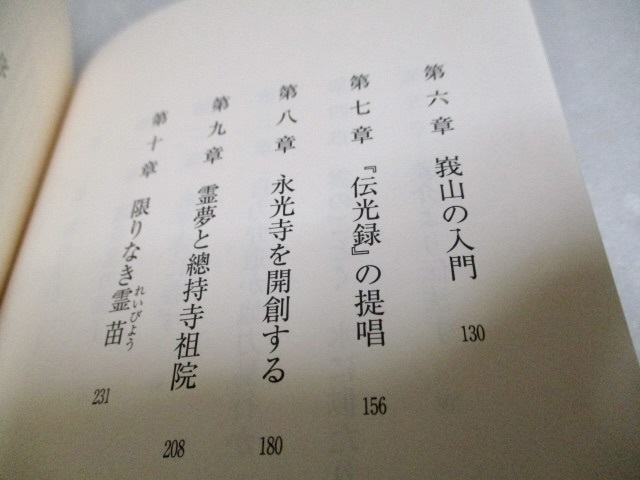 第六章 峩山の入門 130
第七章 『伝光録』の提唱 156
第八章 永光寺を開創する 180
第九章 霊夢と總持寺祖院 208
第十章 限りなき霊苗 231
れいびよう